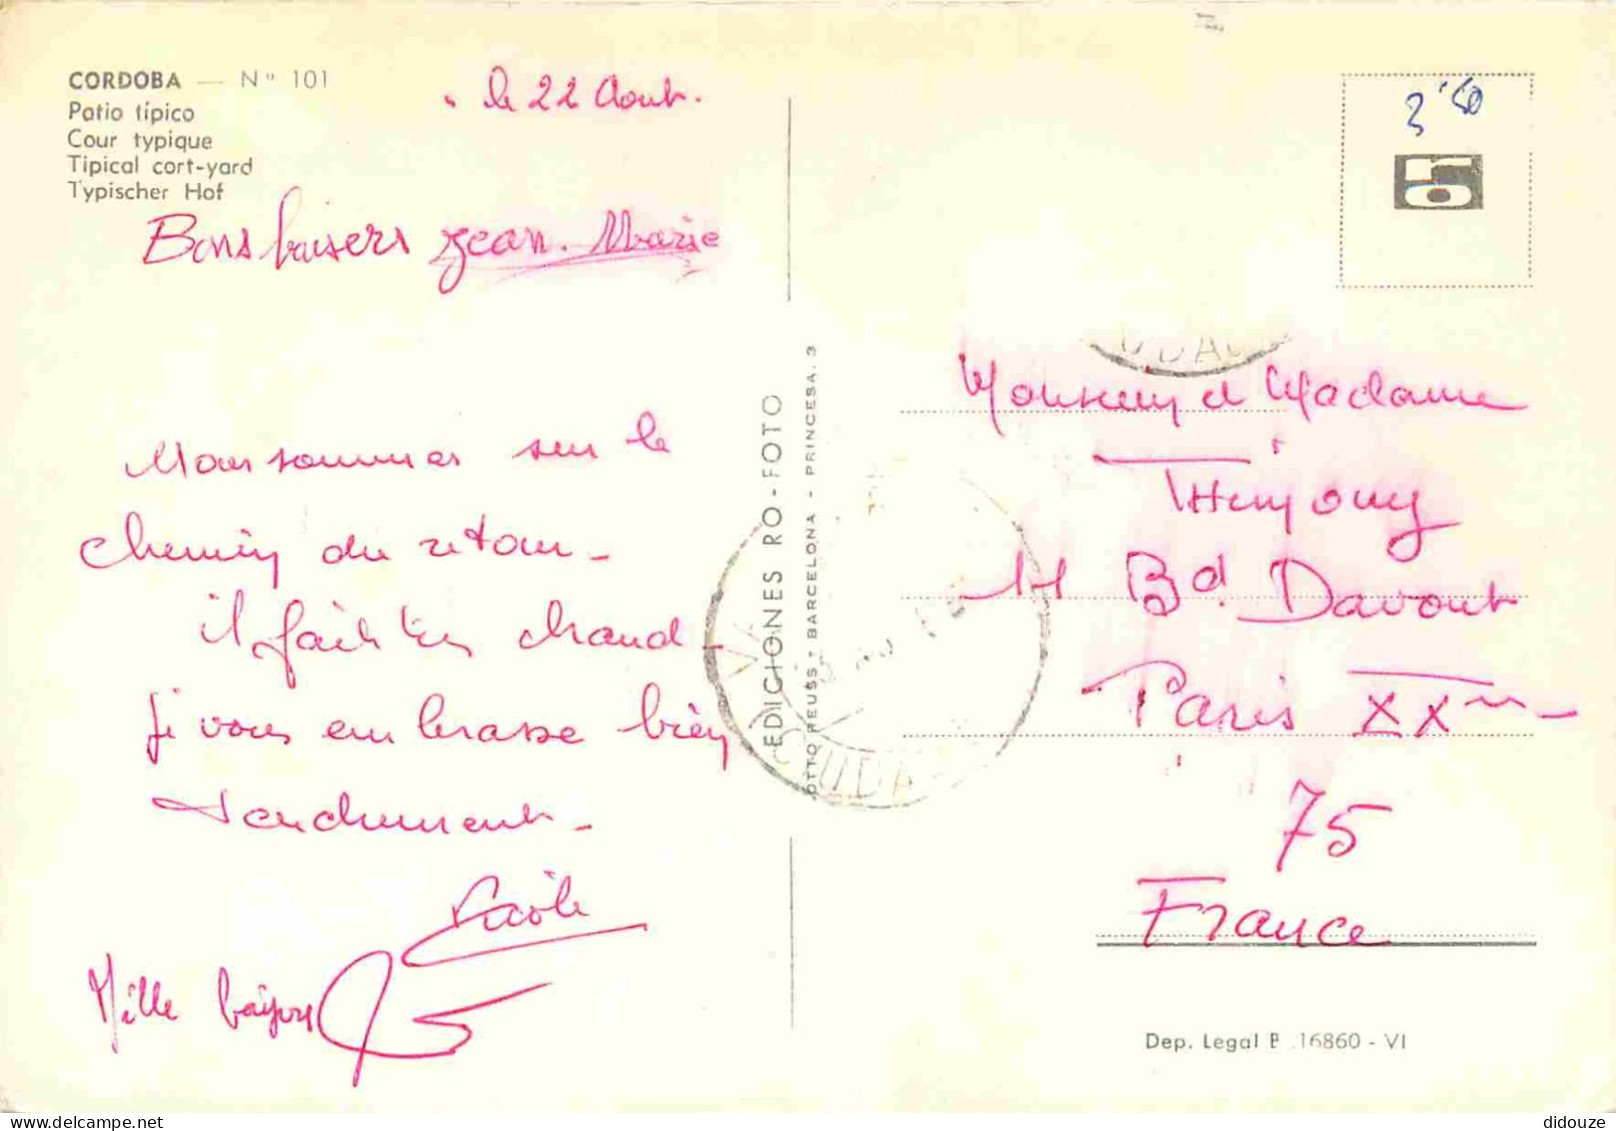 CORDOBA — Nº 101
Patio típico
Cour typique
Tipical cort-yard
Typischer Hof
le 22 Aout.
Bons baisers Jean-Marie
Nous sommes sur le
chemin du retour -
il fait très chaud -
je vous embrasse bien
tendrement -
Mille baisers
EDICIONES RO-FOTO
OTTO REUSS - BARCELONA - PRINCESA, 3
3'50
Monsieur et Madame
11 Bd Davout
Paris XXme
75
France
Dep. Legal B 16860 - VI
didouze